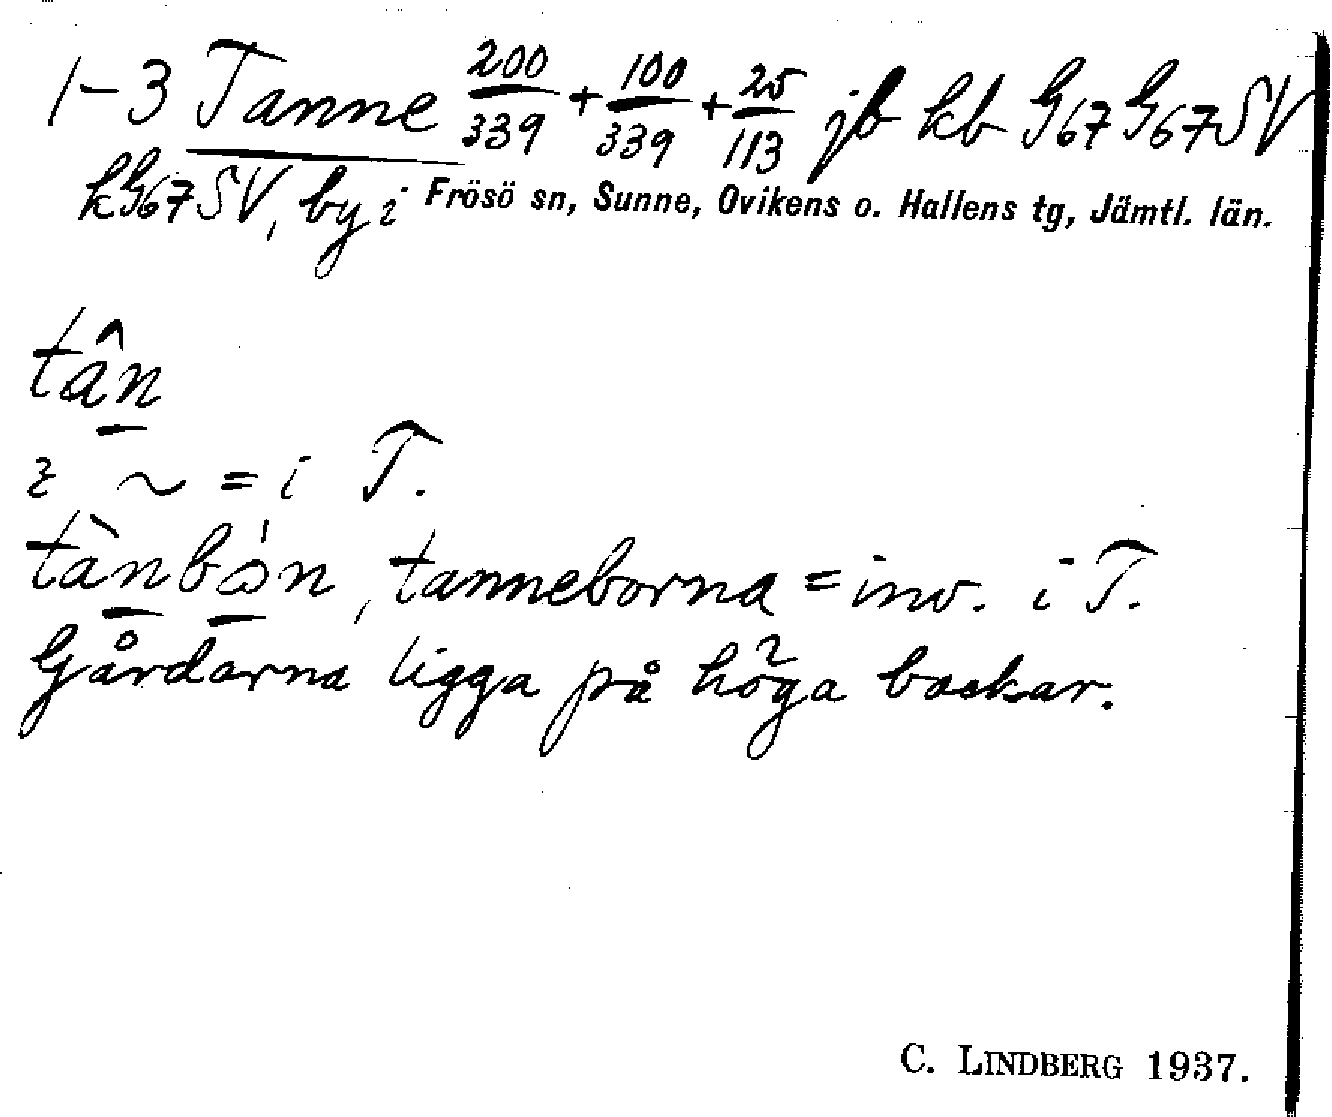 1-3 Tanne 200/339 + 100/339 + 25/113 jb kb G67 G67SV
kG67SV, by i Frösö sn, Sunne, Ovikens o. Hallens tg, Jämtl. län.
tân
i ~ = i T.
tànbɔ́n, tanneborna = inv. i T.
Gårdarna ligga på höga backar.
C. LINDBERG 1937.